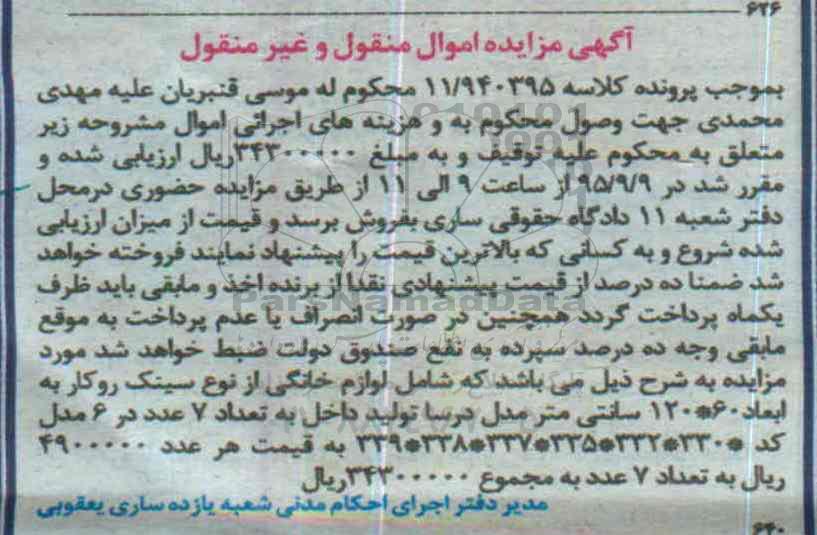 ۶۲۶
آگهی مزایده اموال منقول و غیر منقول
بموجب پرونده کلاسه ۱۱/۹۴۰۳۹۵ محکوم له موسی قنبریان علیه مهدی
محمدی جهت وصول محکوم به و هزینه های اجرائی اموال مشروحه زیر
متعلق به محکوم علیه توقیف و به مبلغ ۳۴۳۰۰۰۰۰ریال ارزیابی شده و
مقرر شد در ۹۵/۹/۹ از ساعت ۹ الی ۱۱ از طریق مزایده حضوری درمحل
دفتر شعبه ۱۱ دادگاه حقوقی ساری بفروش برسد و قیمت از میزان ارزیابی
شده شروع و به کسانی که بالاترین قیمت را پیشنهاد نمایند فروخته خواهد
شد ضمنا ده درصد از قیمت پیشنهادی نقدا از برنده اخذ و مابقی باید ظرف
یکماه پرداخت گردد همچنین در صورت انصراف یا عدم پرداخت به موقع
مابقی وجه ده درصد سپرده به نفع صندوق دولت ضبط خواهد شد مورد
مزایده به شرح ذیل می باشد که شامل لوازم خانگی از نوع سینک روکار به
ابعاد۶۰*۱۲۰ سانتی متر مدل درسا تولید داخل به تعداد ۷ عدد در ۶ مدل
کد *۳۳۰*۳۳۲*۳۳۵*۳۳۷*۳۳۸*۳۳۹ به قیمت هر عدد ۴۹۰۰۰۰۰
ریال به تعداد ۷ عدد به مجموع ۳۴۳۰۰۰۰۰ریال
مدیر دفتر اجرای احکام مدنی شعبه یازده ساری یعقوبی
۶۴۰
ParsNamadData